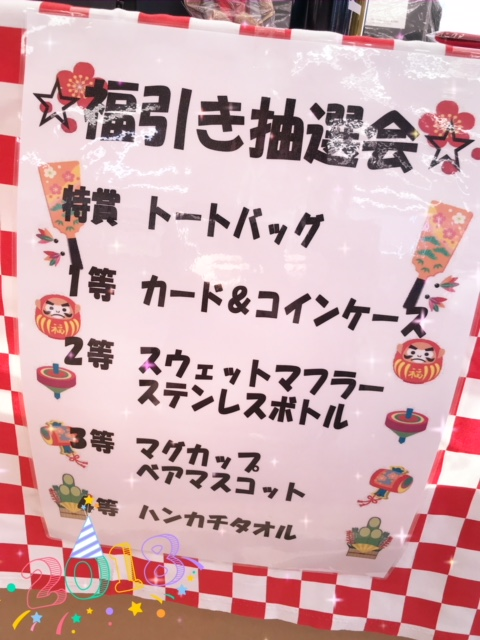 ☆福引き抽選会☆
特賞 トートバッグ
1等 カード&コインケース
2等 スウェットマフラー
ステンレスボトル
3等 マグカップ
ベアマスコット
等 ハンカチタオル
福
福
2018